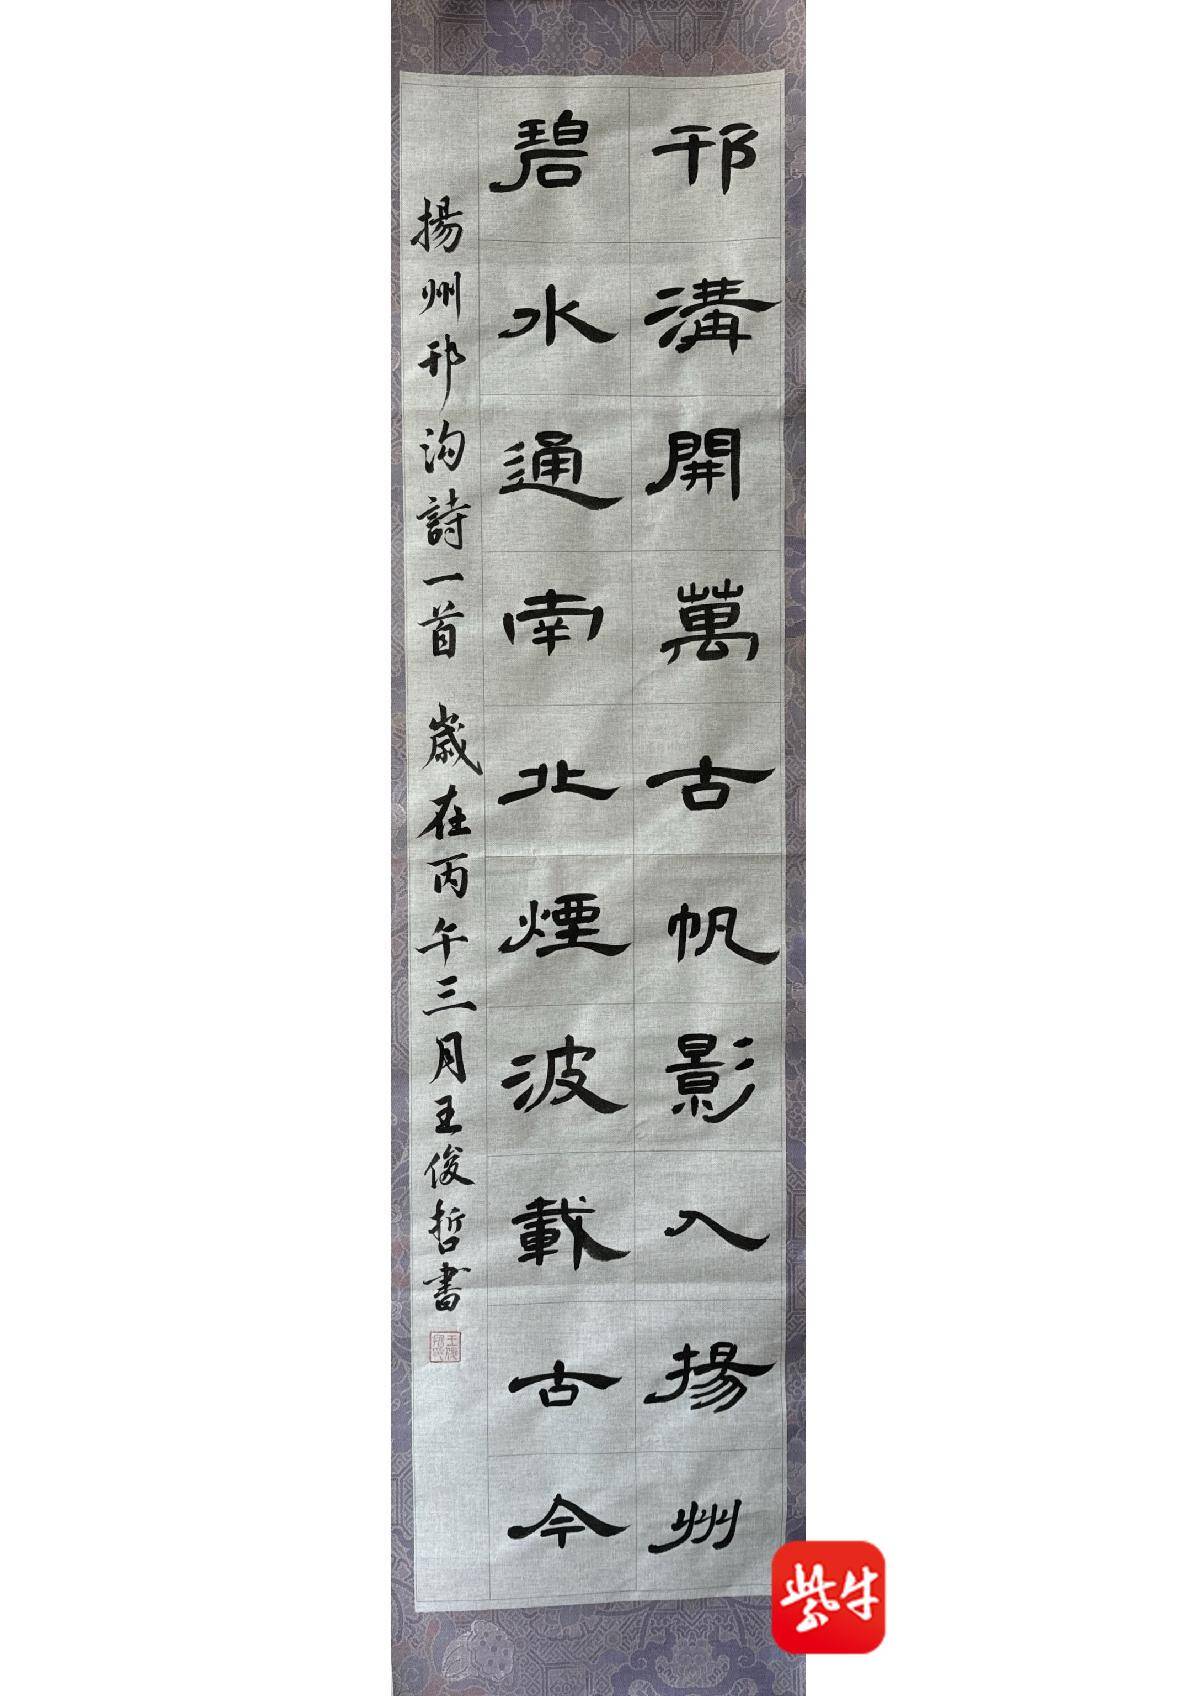 邗溝開萬古帆影入揚州
碧水通南北煙波載古今
揚州邗沟詩一首 歲在丙午三月王俊哲書
紫牛